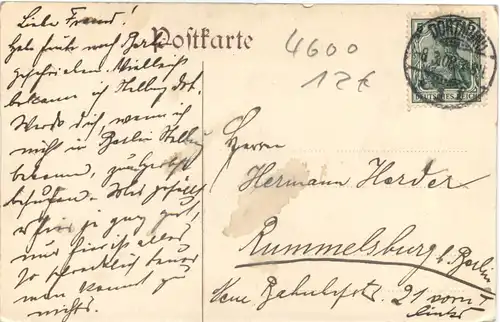 Liebe Freund!
Postkarte
Habe heute nach Berlin
geschrieben. Vielleicht
bekomme ich Stellung dort.
Werde dich, wenn ich
nicht in Berlin Stellung
bekomme, zum Herbst
besuchen. Mir gefällt
es hier ja ganz gut,
nur hier ist alles
so schrecklich teuer
man kommt zu
nichts.
4600
12€
DORTMUND
DEUTSCHES REICH
Herrn
Hermann Harder
Rummelsburg b. Berlin
Neue Bahnhofstr. 21 vorn I
links